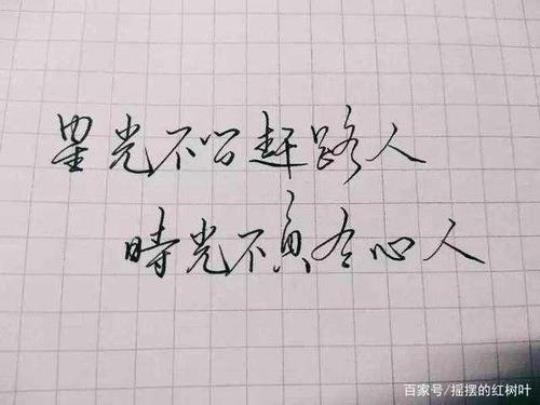 星光不问赶路人
時光不負有心人
百家号/摇摆的红树叶